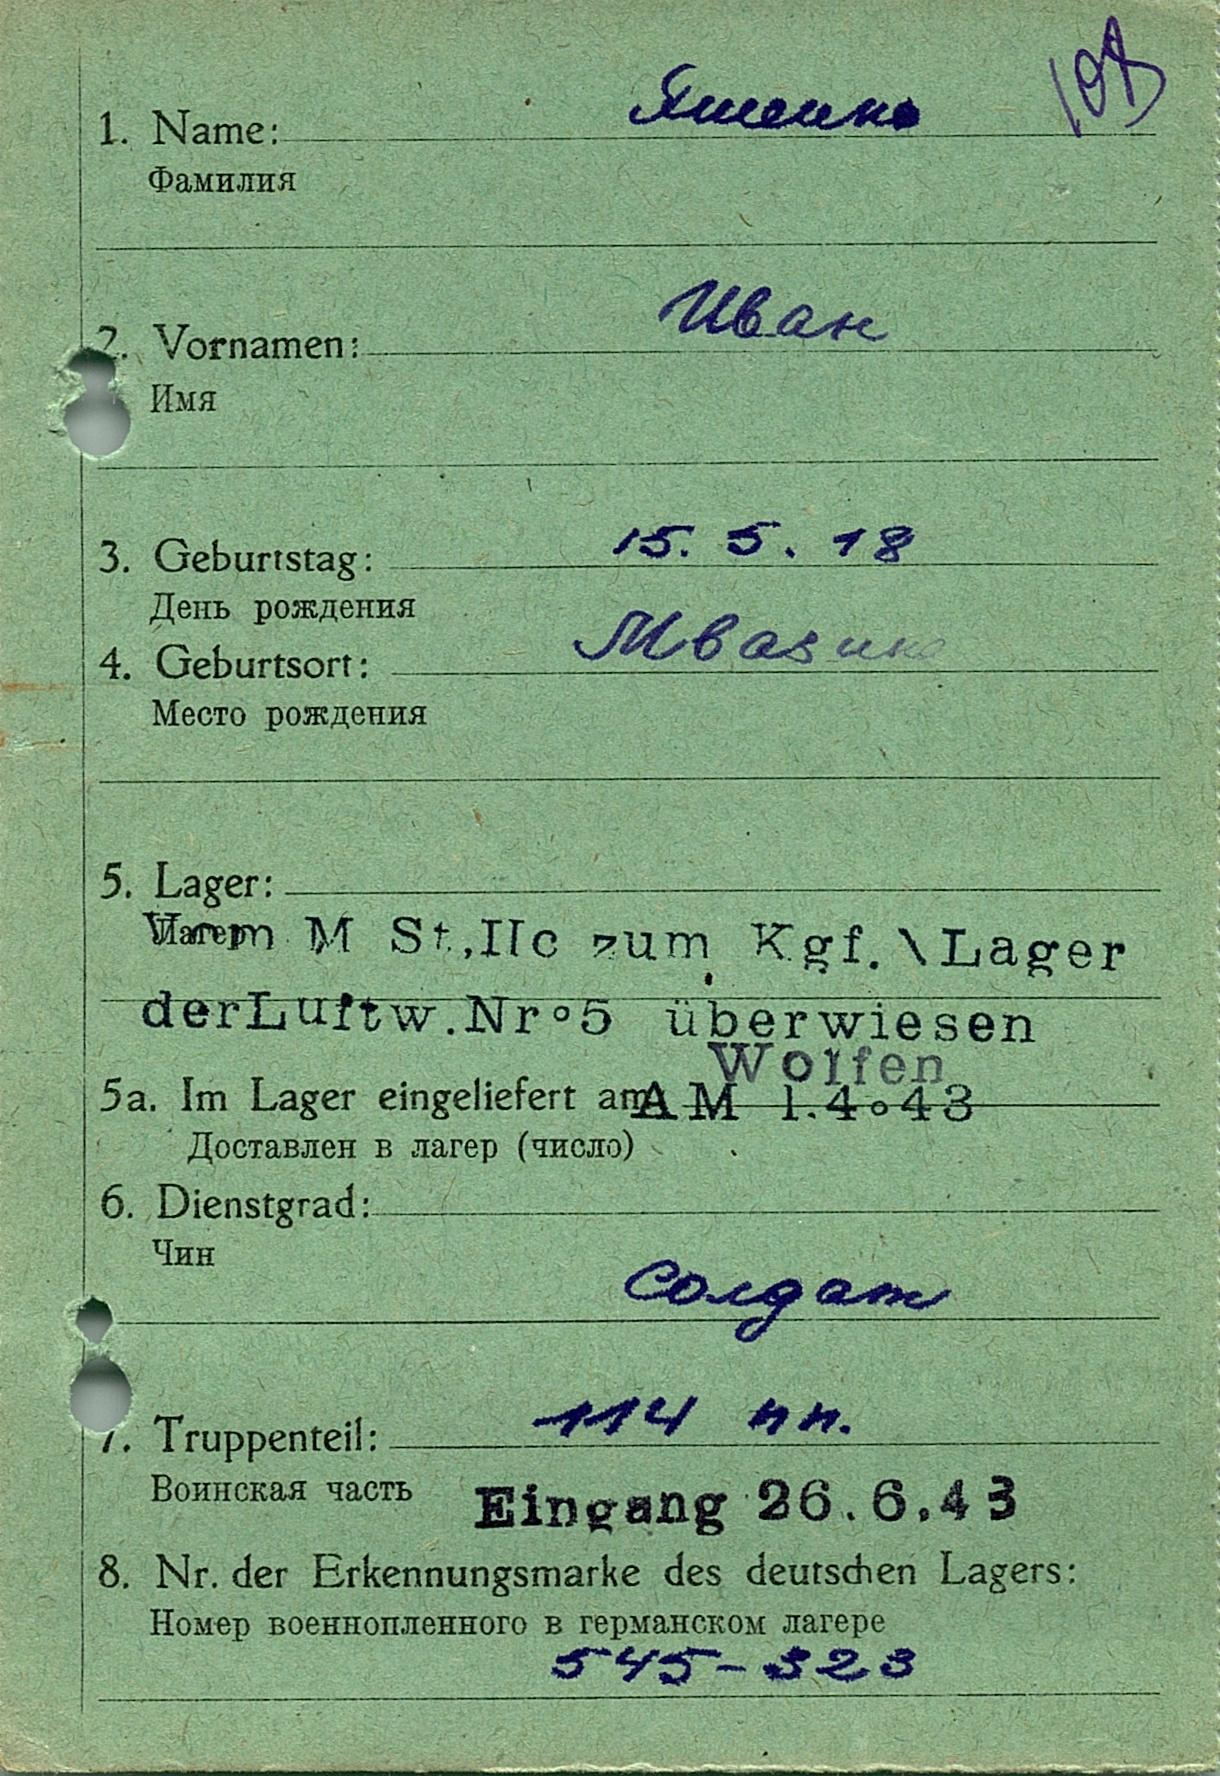 1. Name: Яшенко
Фамилия
2. Vornamen: Иван
Имя
3. Geburtstag: 15. 5. 18
День рождения
4. Geburtsort:
Место рождения
5. Lager:
Лагерь
Vom M St,IIc zum Kgf.\Lager
derLuftw.Nr°5 überwiesen
Wolfen
5a. Im Lager eingeliefert am AM 1.4°43
Доставлен в лагер (число)
6. Dienstgrad:
Чин
солдат
7. Truppenteil: 114 пп.
Воинская часть
Eingang 26.6.43
8. Nr. der Erkennungsmarke des deutschen Lagers:
Номер военнопленного в германском лагере
545-323